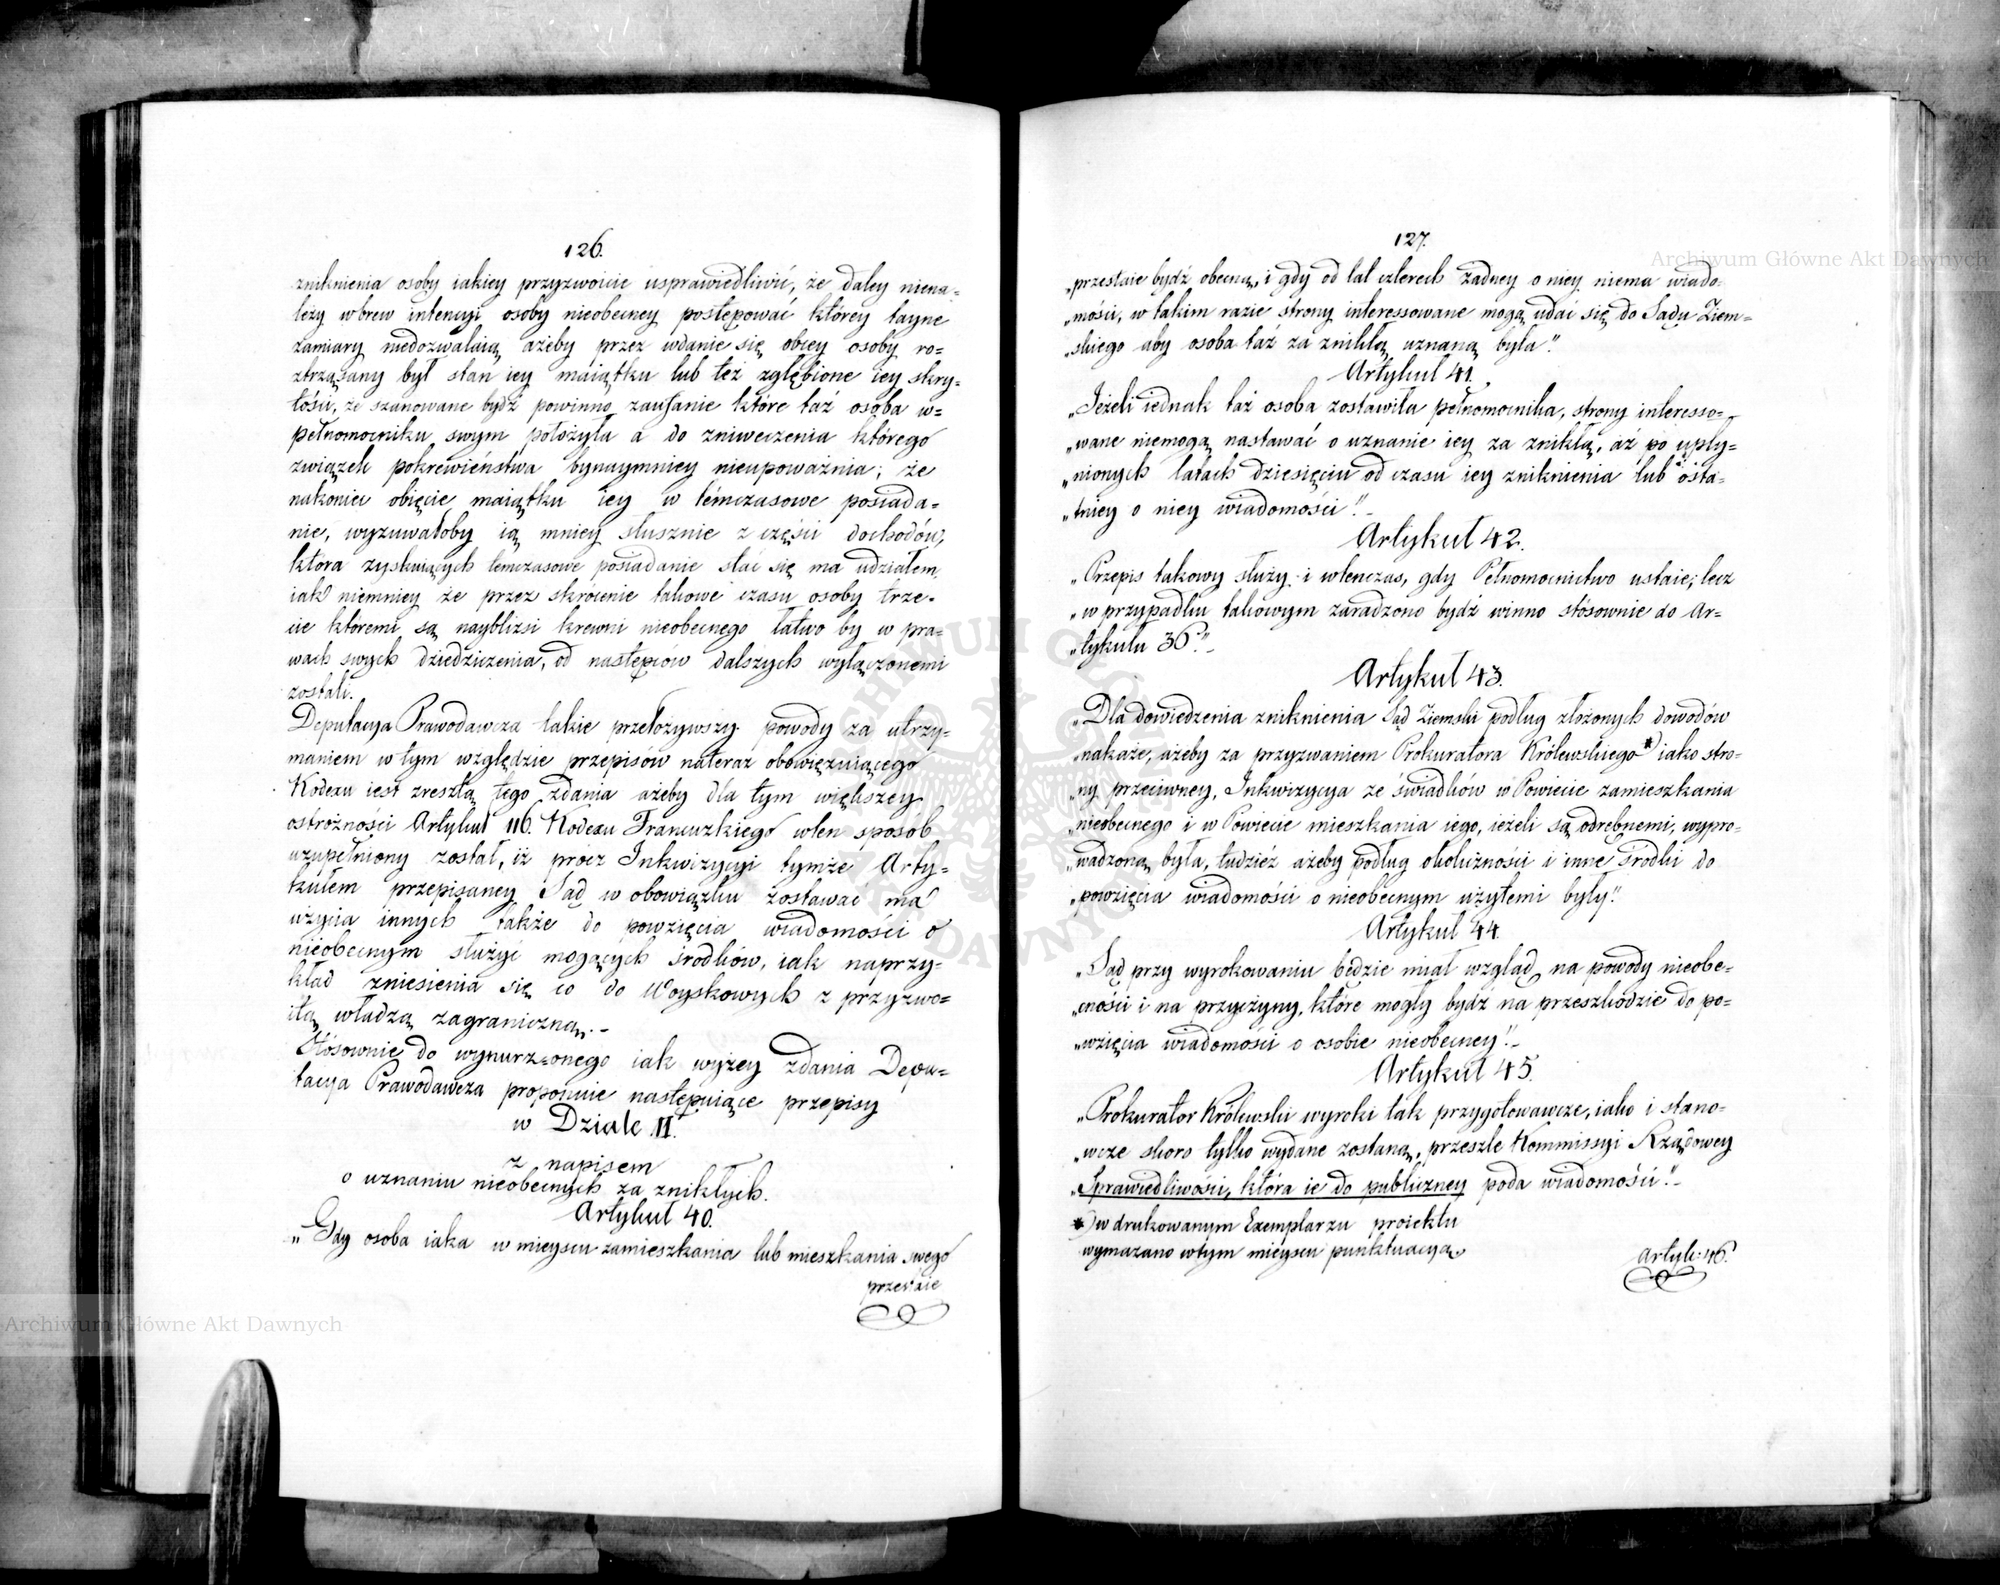 126.
zniknienia osoby iakiey przyzwoicie usprawiedliwić, że daley niena-
leży wbrew intencyi osoby nieobecney postępować którey tayne
zamiary niedozwalaią ażeby przez wdanie się obcey osoby ro-
ztrząsany był stan iey maiątku lub też zgłębione iey skry-
tości, że szanowane bydź powinno zaufanie które taż osoba w-
pełnomocniku swym położyła a do zniweczenia którego
związek pokrewieństwa bynaymniey nieupoważnia; że
nakoniec obięcie maiątku iey w témczasowe posiada-
nie, wyzuwałoby ią mniey słusznie z części dochodów,
która zyskuiących temczasowe posiadanie stać się ma udziałem,
iak niemniey że przez skrócenie takowe czasu osoby trze-
cie któremi są naybliżsi krewni nieobecnego łatwo by w pra-
wach swych dziedziczenia, od następców dalszych wyłączonemi
zostali.
Deputacya Prawodawcza takie przełożywszy powody za utrzy-
maniem w tym względzie przepisów nateraz obowięzuiącego
Kodexu iest zresztą tego zdania ażeby dla tym większey
ostrożności Artykuł 116. Kodexu Francuzkiego wten sposób
uzupełniony został, iż prócz Inkwizycyi tymże Arty-
kułem przepisaney Sąd w obowiązku zostawać ma
użycia innych także do powzięcia wiadomości o
nieobecnym służyć mogących środków, iak naprzy-
kład zniesienia się co do Woyskowych z przyzwo-
itą władzą zagraniczną.-
Stósownie do wynurzonego iak wyżey zdania Depu-
tacya Prawodawcza proponuie następuiące przepisy
w Dziale II.
z napisem
o uznaniu nieobecnych za znikłych.
Artykuł 40.
„Gdy osoba iaka w mieyscu zamieszkania lub mieszkania swego
przestaie
127.
„przestaie bydź obecną, i gdy od lat czterech żadney o niey niema wiado-
„mości, w takim razie strony interessowane mogą udać się do Sądu Ziem-
„skiego aby osoba taż za znikłą uznaną była”.
Artykuł 41.
„Jeżeli iednak taż osoba zostawiła pełnomocnika, strony interesso-
„wane niemogą nastawać o uznanie iey za znikłą, aż po upły-
„nionych latach dziesięciu od czasu iey zniknienia lub osta-
„tniey o niey wiadomości”.-
Artykuł 42.
„Przepis takowy służy i wtenczas, gdy Pełnomocnictwo ustaie; lecz
„w przypadku takowym zaradzono bydź winno stósownie do Ar-
„tykułu 36.”-
Artykuł 43.
„Dla dowiedzenia zniknienia Sąd Ziemski podług złożonych dowodów
„nakaże, ażeby za przyzwaniem Prokuratora Królewskiego*) iako stro-
„ny przeciwney, Inkwizycya ze świadków w Powiecie zamieszkania
„nieobecnego i w Powiecie mieszkania iego, ieżeli są odrębnemi, wypro-
„wadzoną była, tudzież ażeby podług okoliczności i inne środki do
„powzięcia wiadomości o nieobecnym użytemi były”.
Artykuł 44.
„Sąd przy wyrokowaniu będzie miał wzgląd na powody nieobe-
„cności i na przyczyny, które mogły bydz na przeszkodzie do po-
„wzięcia wiadomości o osobie nieobecney”.-
Artykuł 45.
„Prokurator Królewski wyroki tak przygotowawcze, iako i stano-
„wcze skoro tylko wydane zostaną, przeszle Kommissyi Rządowey
„Sprawiedliwości, która ie do publiczney poda wiadomości”.-
*) w drukowanym Exemplarzu proiektu
wymazano w tym mieyscu punktuacyą.
Artyk: 46.
Archiwum Główne Akt Dawnych
Archiwum Główne Akt Dawnych
ARCHIWUM GŁÓWNE AKT DAWNYCH